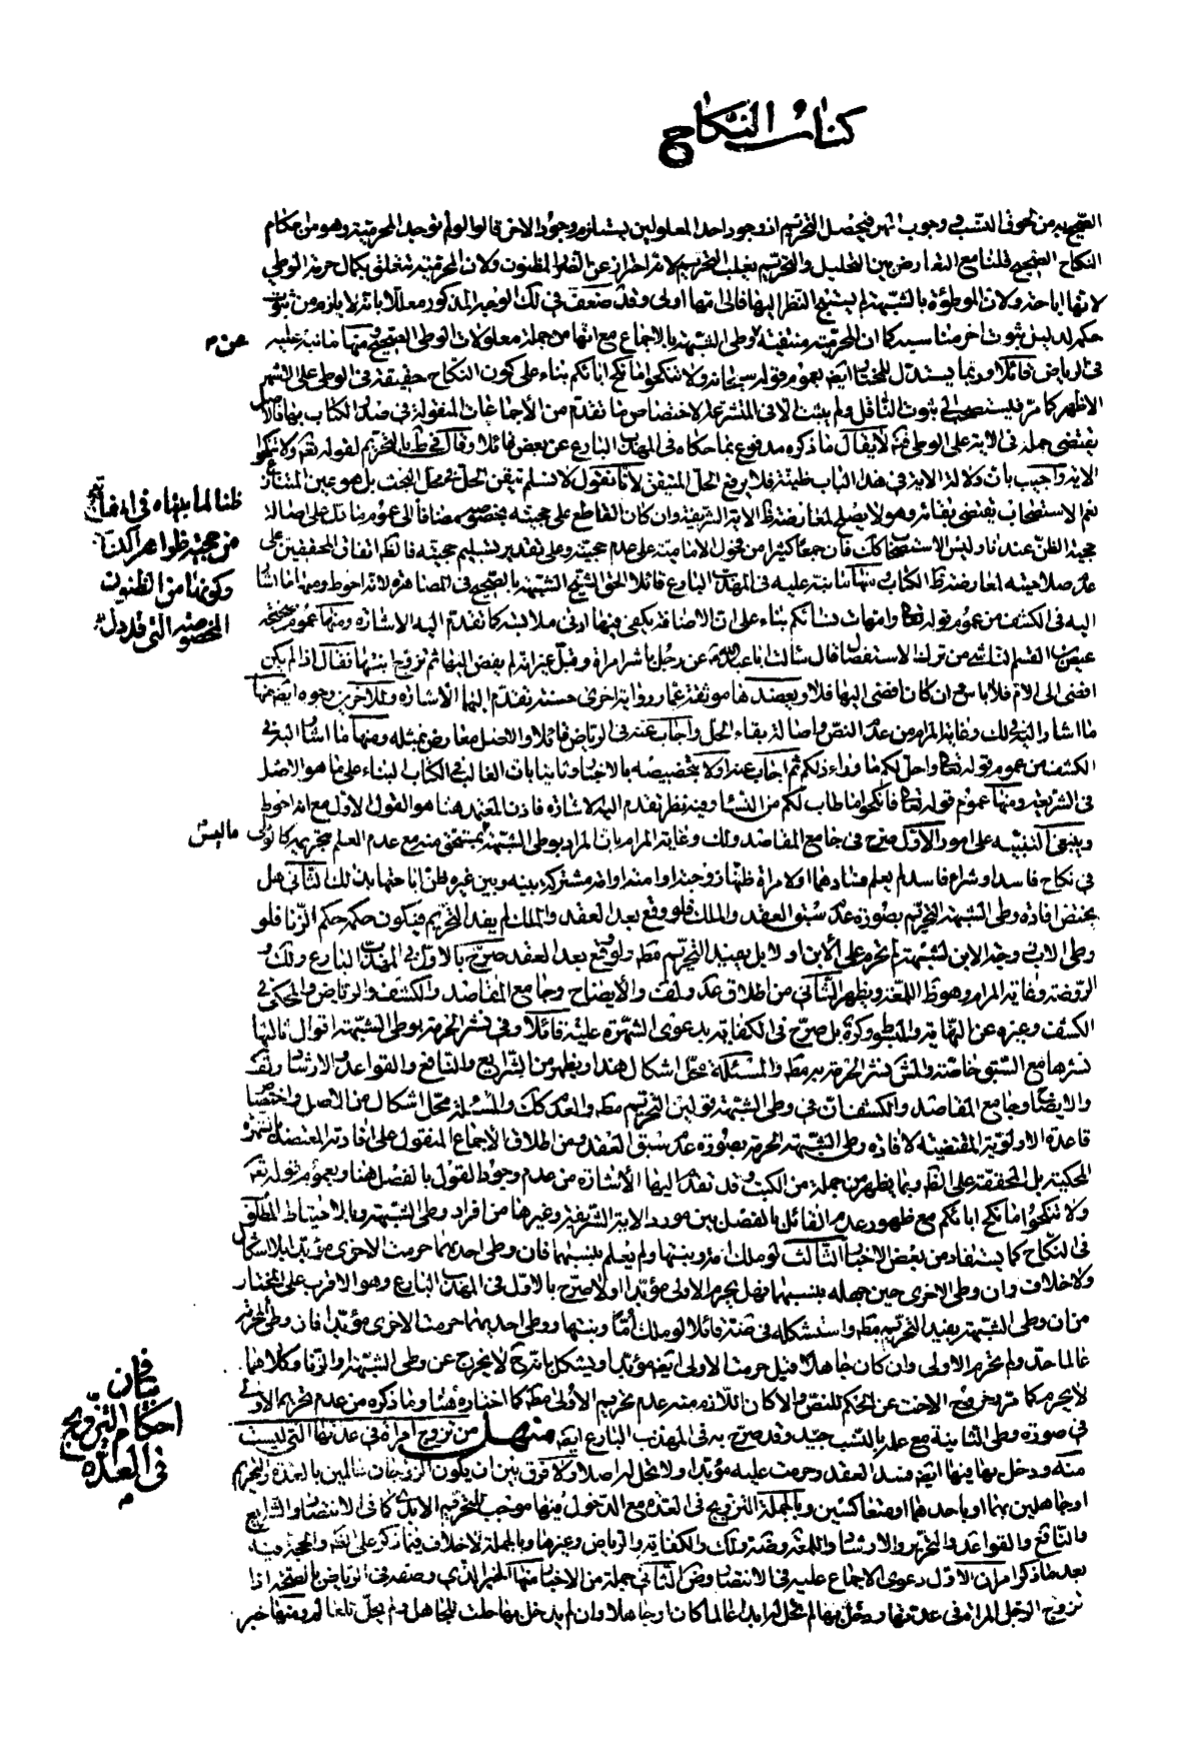 كتاب النكاح
الصحيح به من لحوق النسب ووجوب المهر فيحصل التحريم اذ وجود احد المعلولين يستلزم وجود الاخر قالوا لو لم توجد المحرمية وهو من احكام
النكاح الصحيح قلنا مع التعارض بين التحليل والتحريم يغلب التحريم لانه احراز عن الضرر المظنون ولان المحرمية تتعلق بكمال حرمة الوطي
لانها اباحة ولان الموطوءة بالشبهة لم يستبح النظر اليها فالى امها اولى وقد ضعف في لك الوجه المذكور معللا بانه لا يلزم من ثبوت
حكم لدليل ثبوت اخر مناسبه كما ان المحرمية منتفية وطي الشبهة بالاجماع مع انها من جملة معلولات الوطي الصحيح ومنها ما نبه عليه
عن م
في الرياض قائلا وربما يستدل للمختار ايضا بعموم قوله سبحانه ولا تنكحوا ما نكح اباؤكم بناء على كون النكاح حقيقة في الوطي على الاشهر
الاظهر كما مر فليستصحب الى ثبوت الناقل ولم يثبت الا في المتشرعة لاختصاص ما تقدم من الاجماعات المنقولة في صدر الكتاب بها فالاصل
يقتضي حمله في الاية على الوطي فت لا يقال ما ذكره مدفوع بما حكاه في المهذب البارع عن بعض قائلا وقال في ط بالتحريم لقوله تعالى ولا تنكحوا
الاية واجيب بان دلالة الاية في هذا الباب ظنية فلا يرفع الحل المتيقن لانا نقول لا نسلم تيقن الحل في محل البحث بل هو عين المتنازع
نعم الاستصحاب يقتضي بقائه وهو لا يصلح لمعارضة ظ الاية الشريفة وان كان القاطع على حجيته بخصوصه مضافا الى عموم ما دل على اصالة
ظنا لما بيناه في
من حجية ظواهر الكتاب
وكونها من الظنون
المخصوصة التي قد دل
حجية الظن عندنا وليس الاستصحاب كك فان جمعا كثيرا من فحول الامامية على عدم حجيته وعلى تقدير تسليم حجيته فالظ اتفاق المحققين على
عدم صلاحيته لمعارضة ظ الكتاب ومنها ما نبه عليه في المهذب البارع قائلا الحق الشيخ الشبهة بالصحيح في المصاهرة لانه احوط ومنها ما اشار
اليه في الكشف من عموم قوله تعالى وامهات نسائكم بناء على ان الاضافة يكفي فيها ادنى ملابسة كما تقدم اليه الاشارة ومنها عموم صحيحة
عيص بن القسم الناشي من ترك الاستفصال قال سالت ابا عبد الله ع عن رجل باشر امراة وقبل غير انه لم يفض اليها ثم تزوج ابنتها فقال اذا لم يكن
افضى الى الام فلا باس وان كان افضى اليها فلا ويعضدها موثقة عمار ورواية اخرى حسنة تقدم اليها الاشارة وللاخرين وجوه ايضا منها
ما اشار اليه في لك وغاية المرام من عدم النص واصالة بقاء الحل واجاب عنه في الرياض قائلا والاصل معارض بمثله ومنها ما اشار اليه في
الكشف من عموم قوله تعالى واحل لكم ما وراء ذلكم ثم اجاب عنه اولا بتخصيصه بالاخبار وثانيا بان الغالب في الكتاب البناء على ما هو الاصل
في الشريعة ومنها عموم قوله تعالى فانكحوا ما طاب لكم من النساء وفيه نظر تقدم اليه الاشارة فاذن المعتمد هنا هو القول الاول مع انه احوط
وينبغي التنبيه على امور الاول صرح في جامع المقاصد ولك وغاية المرام بان المراد بوطي الشبهة ما ليس بمستحق منه مع عدم العلم بتحريمه كالوطي
ما ليس
في نكاح فاسد او شراء فاسد لم يعلم فسادهما او لامراة ظنها زوجته او امته او امة مشتركة بينه وبين غيره ظن اباحتها بذلك الثاني هل
يختص افادة وطي الشبهة التحريم بصورة عدم سبق العقد والملك فلو وقع بعد العقد والملك لم يفد التحريم فيكون حكمه حكم الزنا فلو
وطي الاب زوجة الابن لشبهة لم تحرم على الابن او لا بل يفيد التحريم مط ولو وقع بعد العقد صرح بالاول في المهذب البارع ولك و
الروضة وغاية المرام وهو ظ اللمعة ويظهر الثاني من اطلاق عد ولف والايضاح وجامع المقاصد والكشف والرياض والمحكي في
الكشف وغيره عن النهاية والمبسوط وكرة بل صرح في الكفاية بدعوى الشهرة عليه قائلا وفي نشر الحرمة بوطي الشبهة اقوال ثالثها
نشرها مع السبق خاصة والمش نشر الحرمة به مط والمسئلة محل اشكال هذا ويظهر من الشرايع والنافع والقواعد والارشاد ولف
والايضاح وجامع المقاصد والكشف ان في وطي الشبهة قولين التحريم مط والعدم كك والمسئلة محل اشكال من الاصل واختصاص
قاعدة الاولوية المقتضية لافادة وطي الشبهة الحرمة بصورة عدم سبق العقد ومن اطلاق الاجماع المنقول على افادته المعتضد بالشهرة
المحكية بل المحققة على الظ وبما يظهر من جملة من الكتب وقد تقدم اليها الاشارة من عدم وجود القول بالفصل هنا وبعموم قوله تعالى
ولا تنكحوا ما نكح اباؤكم مع ظهور عدم القائل بالفصل بين مورد الاية الشريفة وغيرها من افراد وطي الشبهة وبالاحتياط المطلق
في النكاح كما يستفاد من بعض الاخبار الثالث لو ملك امة وبنتها ولم يعلم بنسبتهما فان وطي احديهما حرمت الاخرى مؤبدا بلا اشكال
ولا خلاف وان وطي الاخرى حين جهله بنسبتهما فهل يحرم الاولى مؤبدا او لا صرح بالاول في المهذب البارع وهو الاقرب على المختار
من ان وطي الشبهة يفيد التحريم مط واستشكله في ضة قائلا لو ملك أما وبنتها ووطي احديهما حرمت الاخرى مؤبدا فان وطي المحرمة
عالما حد ولم تحرم الاولى وان كان جاهلا قيل حرمت الاولى ايضا مؤبدا ويشكل بانه لا يخرج عن وطي الشبهة او الزنا وكلاهما
لا يحرم كما مر وخروج الاخت عن الحكم للنص والا كان اللازم منه عدم تحريم الاولى مط كما اختاره هنا وما ذكره من عدم تحريم الاولى
في صورة وطي الثانية مع علمه بالنسب جيد وقد صرح به في المهذب البارع ايضا منهل من تزوج امراة في عدتها التي ليست
بيان
احكام التزويج
في العدة
منه ودخل بها فيها ايضا فسد العقد وحرمت عليه مؤبدا ولا تحل له اصلا ولا فرق بين ان يكون الزوجان عالمين بالعدة والتحريم
او جاهلين بهما او باحدهما او متعاكسين وبالجملة التزويج في العدة مع الدخول فيها موجب للتحريم الابدي كما في الانتصار والشرايع
والنافع والقواعد والتحرير والارشاد واللمعة وضة ولك والكفاية والرياض وغيرها وبالجملة لا خلاف فيما ذكر على الظ والحجة فيه
بعد ما ذكر امران الاول دعوى الاجماع عليه في الانتصار وض الثاني جملة من الاخبار منها الخبر الذي وصفه في الرياض بالصحة اذا
تزوج الرجل المراة في عدتها ودخل بها لم تحل له ابدا عالما كان او جاهلا وان لم يدخل بها حلت للجاهل ولم يحل للعالم ومنها خبر